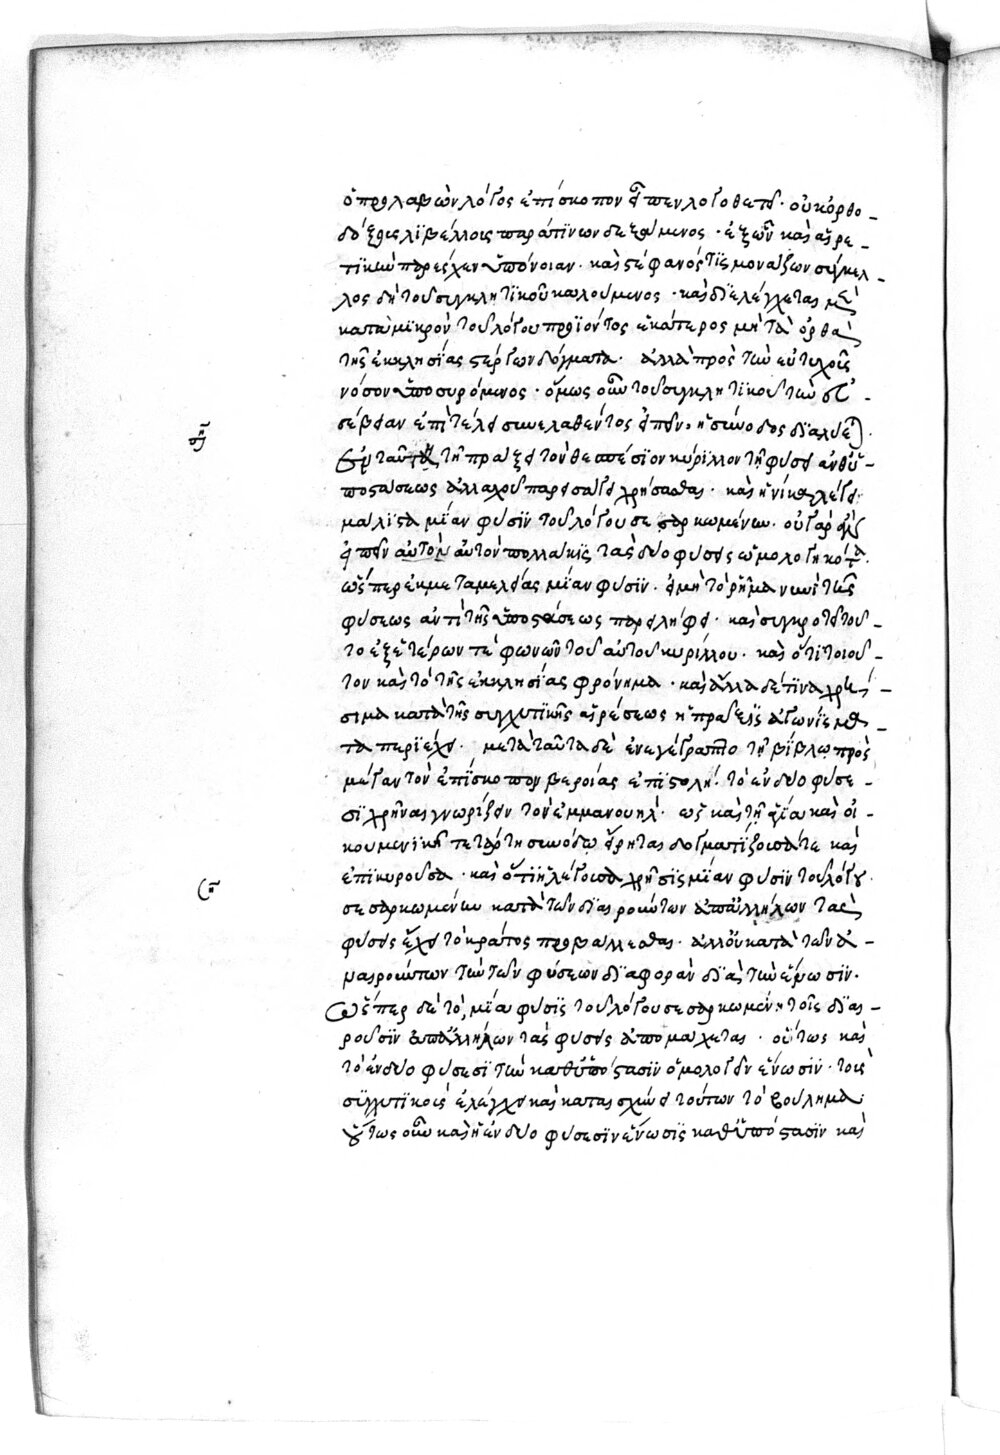 ὁ προλαβὼν λόγος ἐπίσκοπον εἶπεν λογοθετεῖ· οὐκ ὀρθο-
δόξοις λιβέλλοις παρά τινων δεξάμενος· ἐξ ὧν καὶ αἱρε-
τικὴν παρέσχεν ὑπόνοιαν· καὶ στέφανός τις μονάζων σύγκελ-
λος δὴ τοῦ συγκλητικοῦ καλούμενος· καὶ διελέγχεται μὲν
κατὰ μικρὸν τοῦ λόγου προϊόντος ἑκάτερος μὴ τὰ ὀρθὰ
τῆς ἐκκλησίας στέργων δόγματα· ἀλλὰ πρὸς τὴν εὐτυχοῦς
νόσον ὑποσυρόμενος· ὅμως οὖν τοῦ συγκλητικοῦ τὴν
σέβειαν ἐπὶ τέλει συνελαθέντος εἰπεῖν, ἡ σύνοδος διαλύεται·
Ἐν ταύτῃ τῇ πράξει τὸν θεσπέσιον κύριλλον τῇ φύσει ἀνθ' ὑ-
ποστάσεως ἀλλαχοῦ παρεισάγει χρήσασθαι· καὶ ἡνίκα λέγει
μάλιστα μίαν φύσιν τοῦ λόγου σεσαρκωμένην· οὐ γὰρ
εἰπεῖν αὐτὸν αὐτὸν πολλάκις τὰς δύο φύσεις ὡμολογηκότα
ὥσπερ ἐκ μεταμελείας μίαν φύσιν· εἰ μὴ τὸ ῥῆμα νυνὶ τῆς
φύσεως ἀντὶ τῆς ὑποστάσεως παρείληφε· καὶ συγκροτεῖ τοῦ-
το ἐξ ἑτέρων τε φωνῶν τοῦ αὐτοῦ κυρίλλου· καὶ ὅτι τοιοῦ-
τον καὶ τὸ τῆς ἐκκλησίας φρόνημα· καὶ ἄλλα δέ τινα χρή-
σιμα κατὰ τῆς συγχυτικῆς αἱρέσεως ἡ πρᾶξις ἀγωνίσμα-
τα περιέχει· μετὰ ταῦτα δὲ ἐνεγέγραπτο τῇ βίβλῳ πρὸς
μέγαν τὸν ἐπίσκοπον βεροίας ἐπιστολή· τὸ ἐν δύο φύσε-
σι χρῆναι γνωρίζειν τὸν ἐμμανουήλ· ὡς καὶ τῇ ἁγίᾳ καὶ οἰ-
κουμενικῇ τετάρτῃ συνόδῳ εἴρηται δογματίζουσά τε καὶ
ἐπικυροῦσα· καὶ ὅτι ἡ λέγουσα χρῆσις μίαν φύσιν τοῦ λόγου
σεσαρκωμένην κατὰ τῶν διαιρούντων ἀπ' ἀλλήλων τὰς
φύσεις ἔχει τὸ κράτος προβάλλεσθαι· ἀλλ' οὐ κατὰ τῶν ἀ-
μαιρούντων τὴν τῶν φύσεων διαφορὰν διὰ τὴν ἕνωσιν·
Ὥσπερ δὲ τὸ, μία φύσις τοῦ λόγου σεσαρκωμένη τοῖς διαι-
ροῦσιν ἀπ' ἀλλήλων τὰς φύσεις ἀπομάχεται· οὕτως καὶ
τὸ ἐν δύο φύσεσι τὴν καθ' ὑπόστασιν ὁμολογεῖν ἕνωσιν· τοὺς
συγχυτικοὺς ἐλέγχει καὶ καταισχύνει τούτων τὸ βούλημα·
οὕτως οὖν καὶ ἡ ἐν δύο φύσεσιν ἕνωσις καθ' ὑπόστασιν καὶ